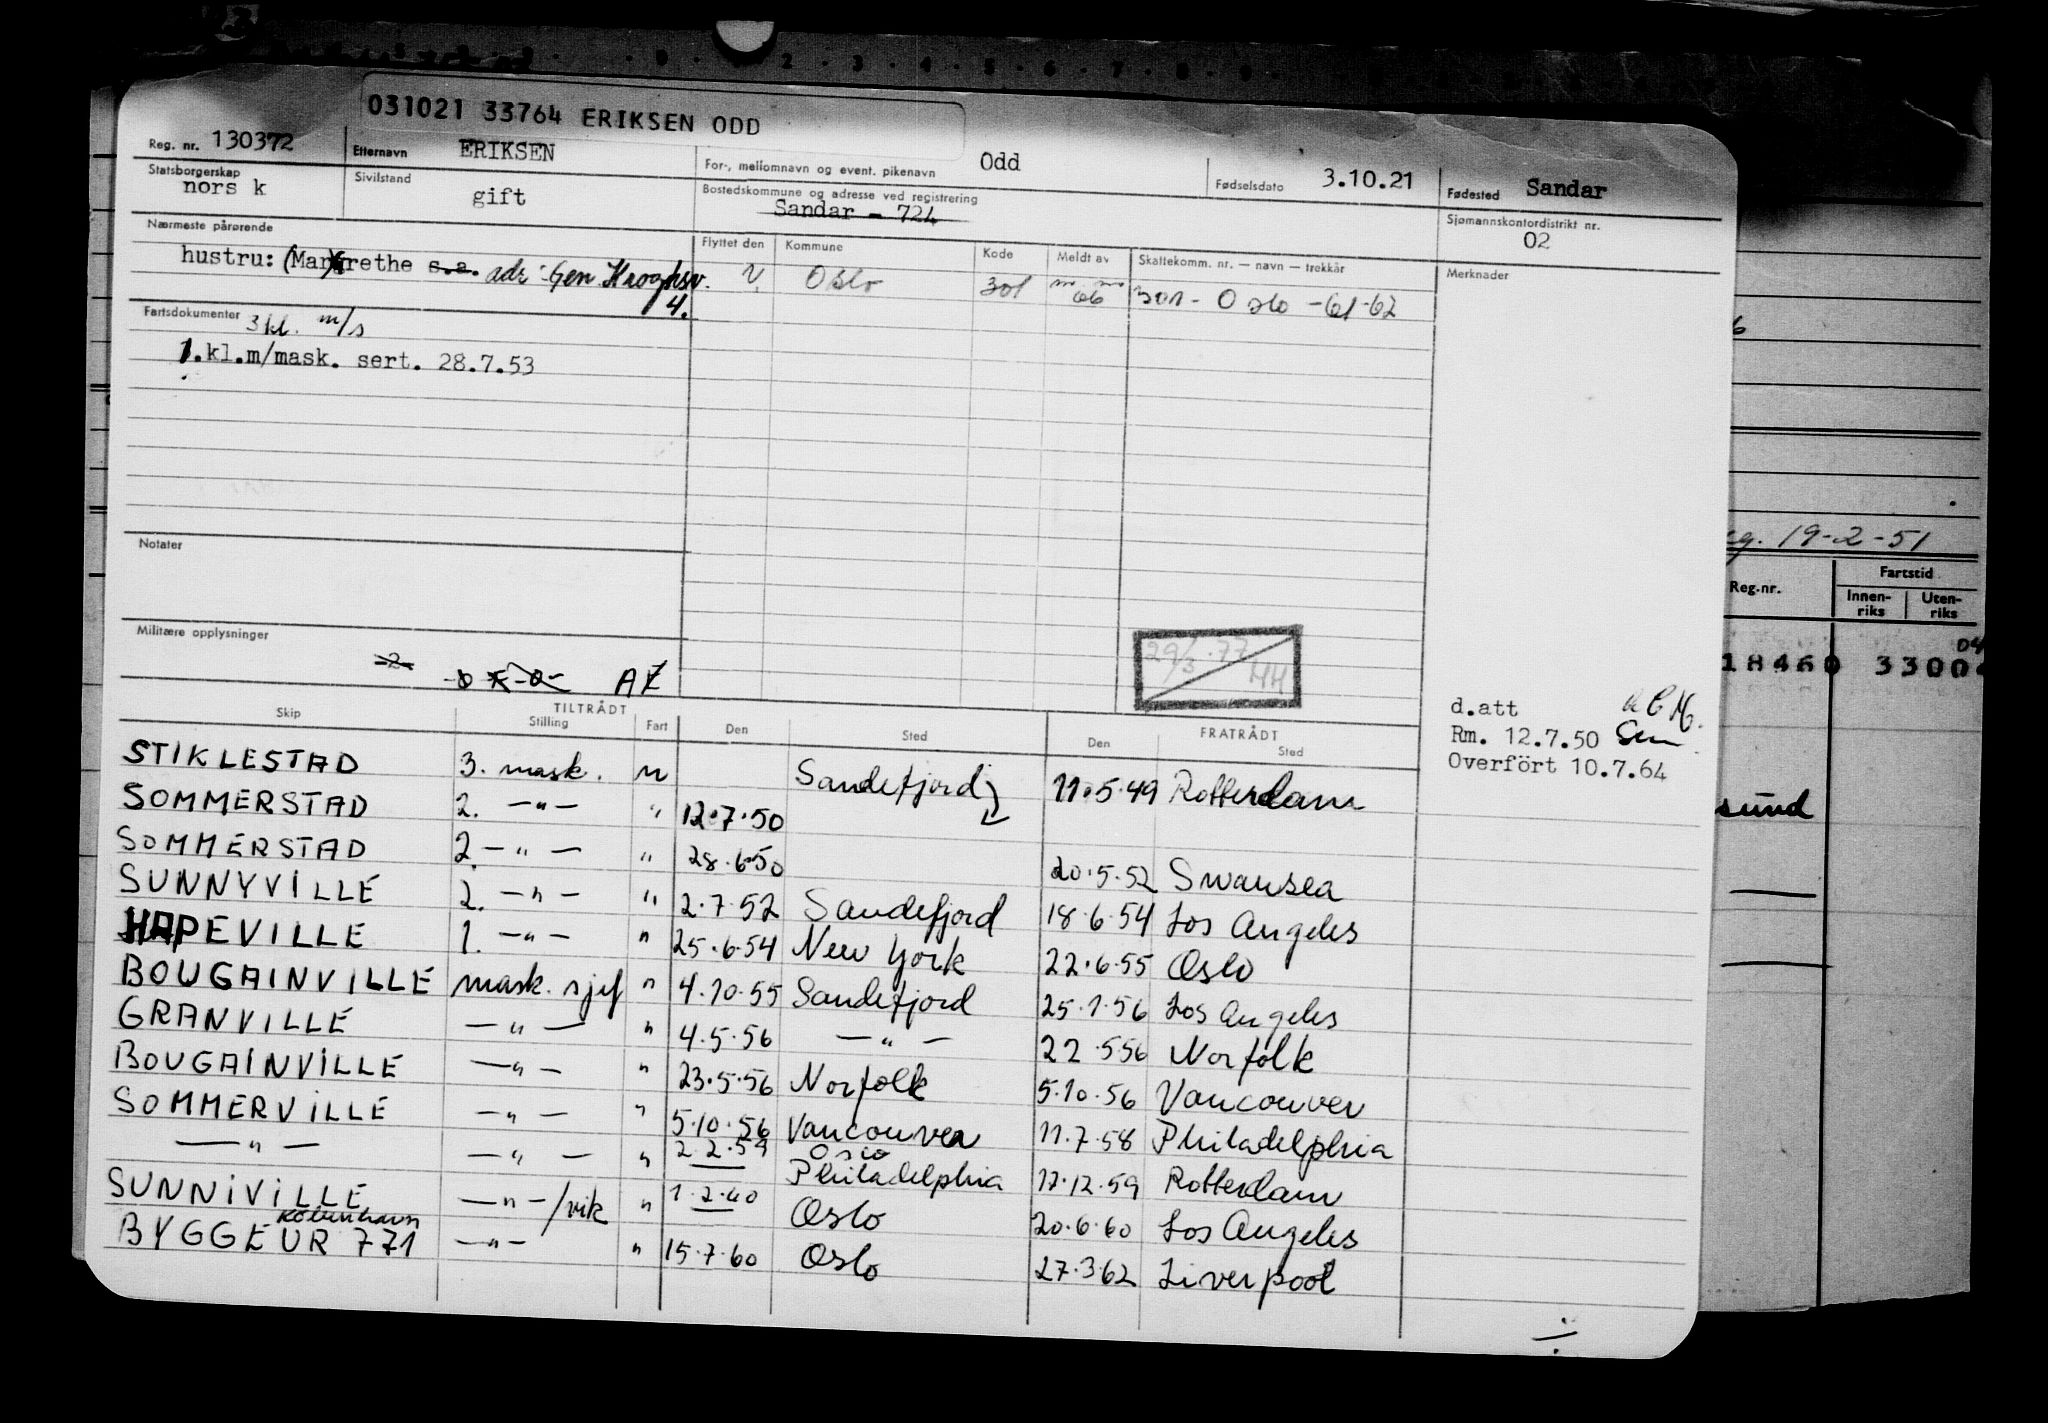 031021 33764 ERIKSEN ODD
Reg. nr. 130372 Etternavn ERIKSEN For-, mellomnavn og event. pikenavn Odd Fødselsdato 3.10.21 Fødested Sandar
Statsborgerskap nors k Sivilstand gift Bostedskommune og adresse ved registrering Sandar - 724 Sjømannskontordistrikt nr. 02
Nærmeste pårørende Flyttet den Kommune Kode Meldt av Skattekomm. nr. — navn — trekkår Merknader
hustru: (Margrethe s.a. adr: Gen. Kroghsv. 4. Oslo 301 301 - Oslo - 61-62
Fartsdokumenter 3 kl. m/s
1.kl.m/mask. sert. 28.7.53
Notater
Militære opplysninger
29/3.77 HH
d.att
Rm. 12.7.50
Overfört 10.7.64
TILTRÅDT FRATRÅDT
Skip Stilling Fart Den Sted Den Sted
STIKLESTAD 3. mask. u Sandefjord 11.5.49 Rotterdam
SOMMERSTAD 2. —"— " 12.7.50
SOMMERSTAD 2. —"— " 28.6.50 20.5.52 Swansea
SUNNYVILLE 2. —"— " 2.7.52 Sandefjord 18.6.54 Los Angeles
HAPEVILLE 1. —"— " 25.6.54 New York 22.6.55 Oslo
BOUGAINVILLE mask. sjef " 4.10.55 Sandefjord 25.1.56 Los Angeles
GRANVILLE —"— " 4.5.56 —"— 22.556 Norfolk
BOUGAINVILLE —"— " 23.5.56 Norfolk 5.10.56 Vancouver
SOMMERVILLE —"— " 5.10.56 Vancouver 11.7.58 Philadelphia
—"— —"— " 2.2.59 Oslo Philadelphia 17.12.59 Rotterdam
SUNNIVILLE —"—/vik " 1.2.60 Oslo 20.6.60 Los Angeles
København
BYGGE UR 771 —"— " 15.7.60 Oslo 27.362 Liverpool
eg. 19-2-51
Reg.nr. Fartstid
Innen-riks Uten-riks
18460 3300
sund